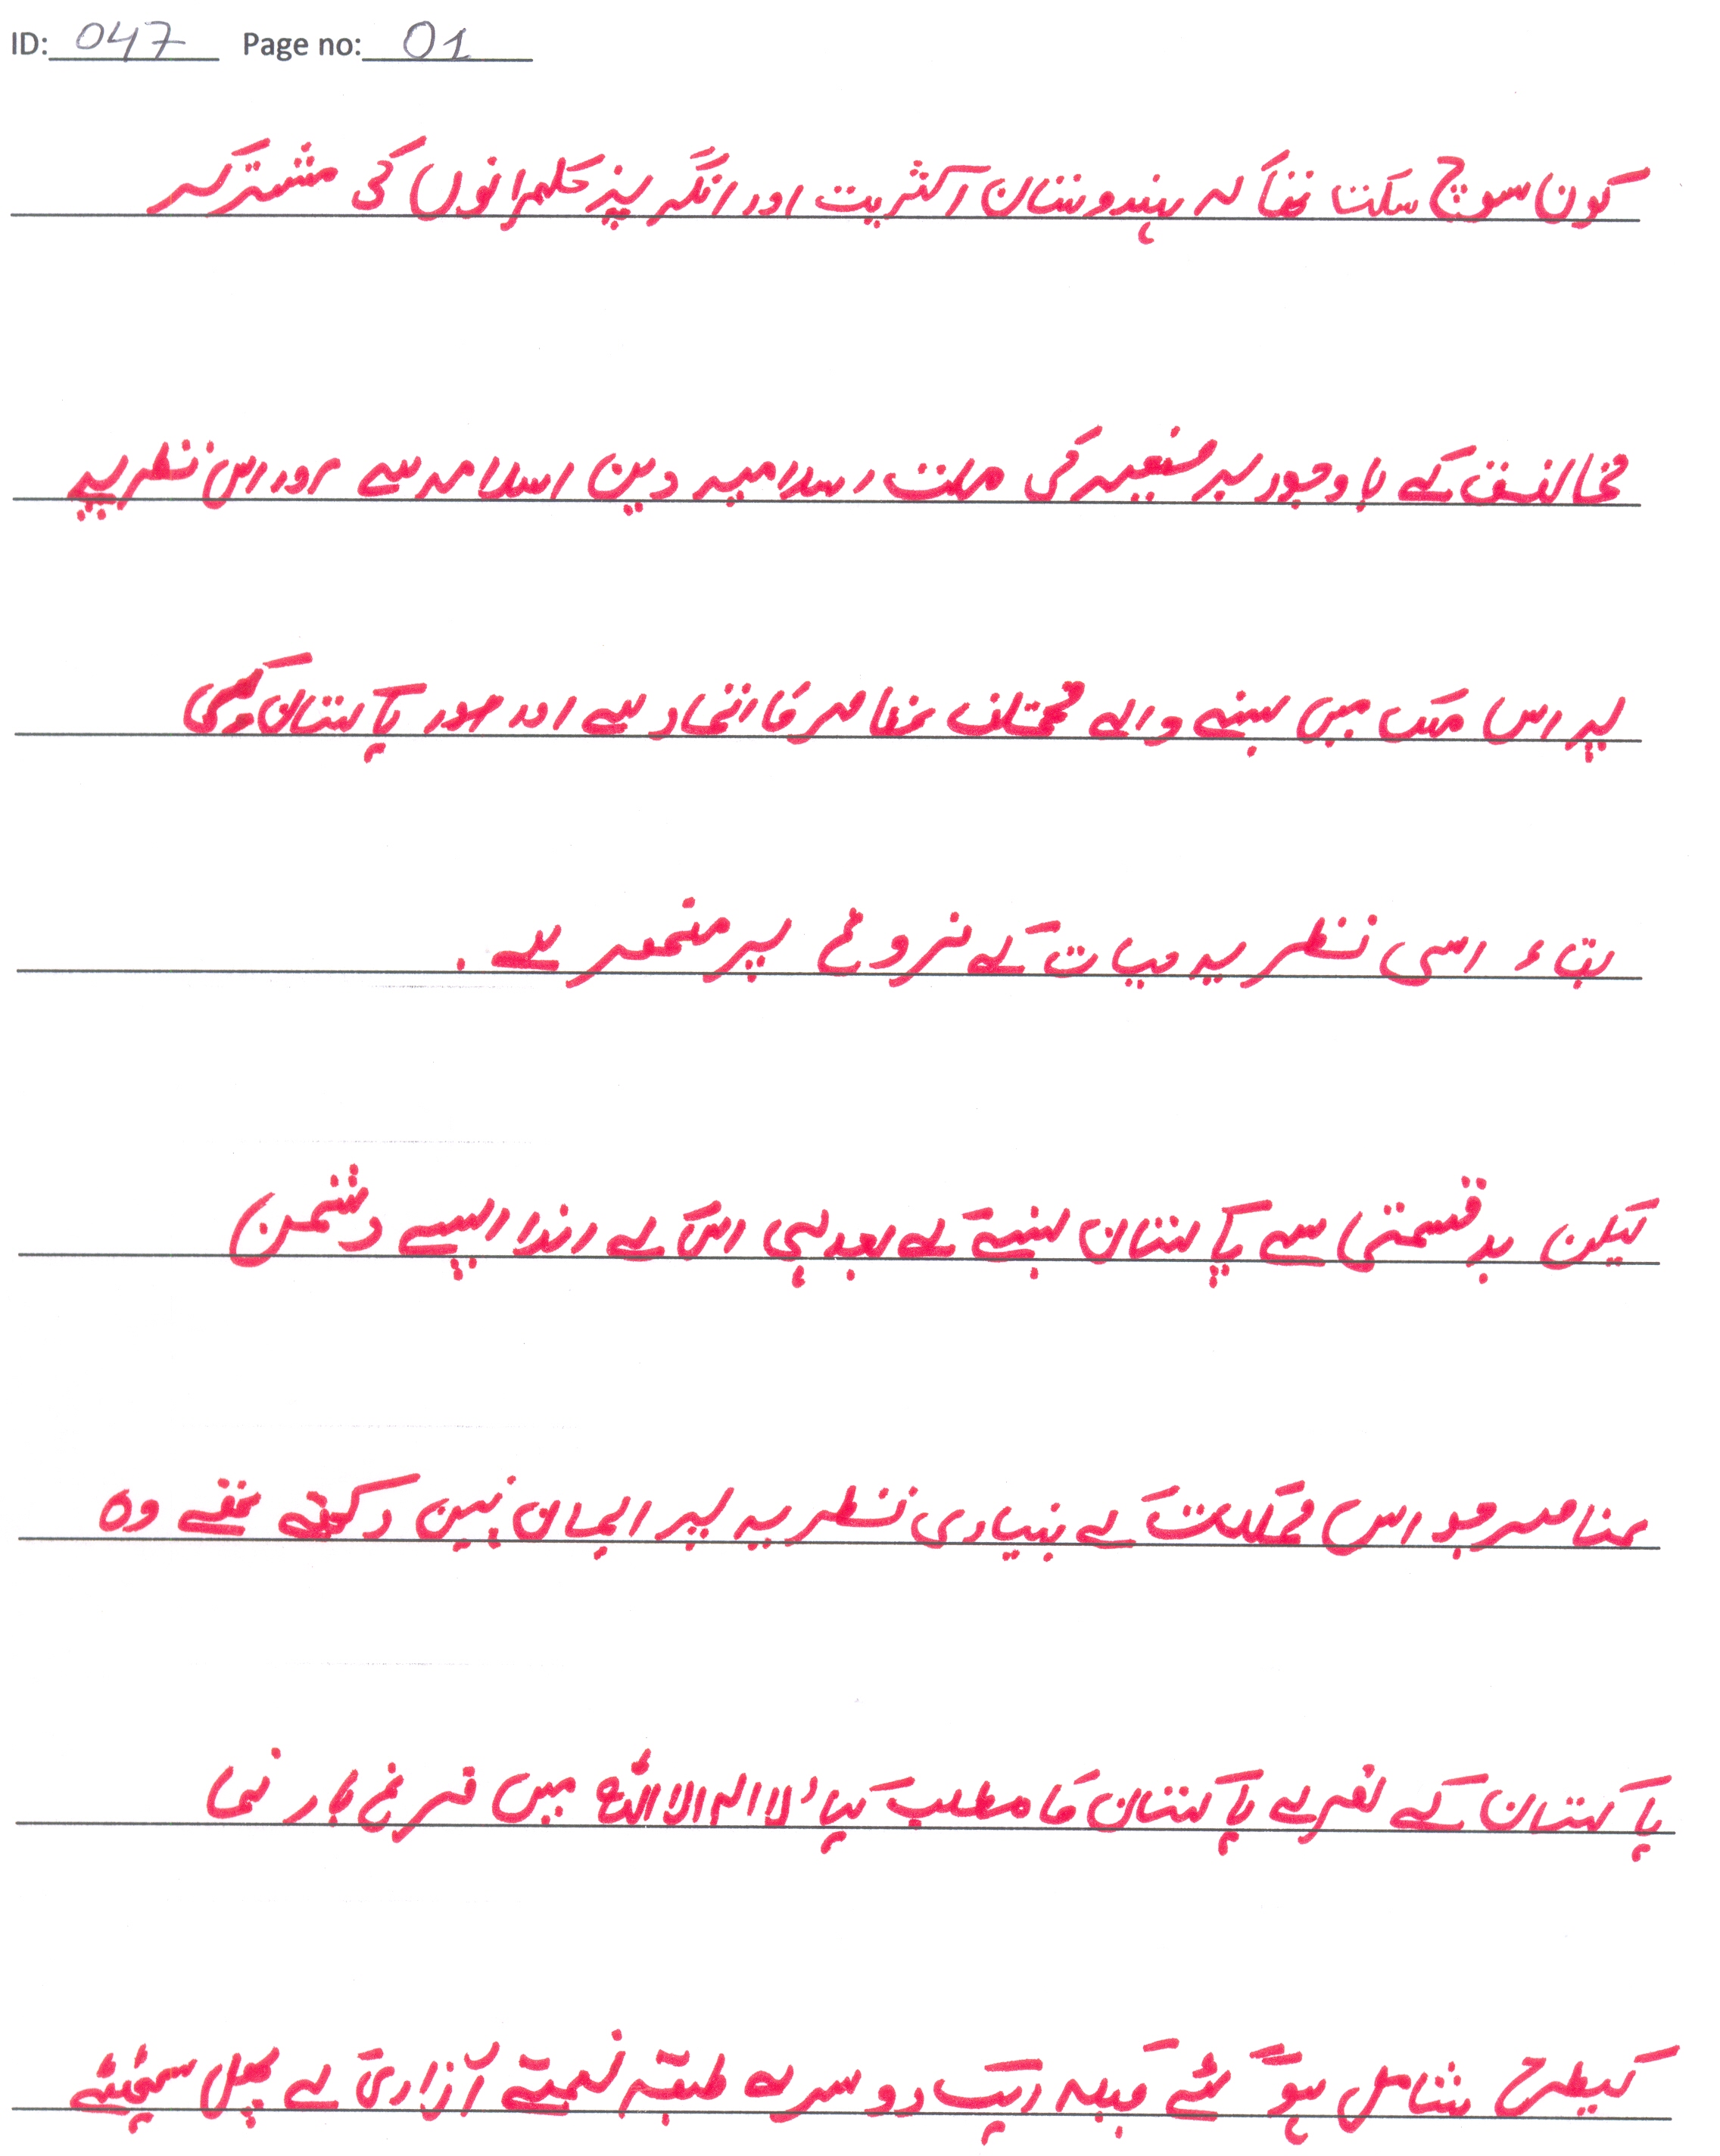 ID: 047 Page no: 01
کون سوچ سکتا تھا کہ ہندوستان اکثریت اور انگریز حکمرانوں کی مشترکہ
مخالفت کے باوجود برصغیر کی ملت اسلامیہ دین اسلام ہے اور اس نظریے
پر اس ملک میں بسنے والے مختلف عناصر کا اتحاد ہے اور پاکستان کی
بقاء اسی نظریہ حیات کے فروغ پر منحصر ہے .
لیکن بدقسمتی سے پاکستان بننے کے بعد ہی اس کے اندر ایسے دشمن
عناصر جو اس مملکت کے بنیادی نظریہ پر ایمان نہیں رکھتے تھے وہ
پاکستان کے نعرے پاکستان کا مطلب کیا 'لا الہ الا اللہ میں
کیطرح شامل ہو گئے جبکہ ایک دوسرے طبقہ نے آزادی کے پھل سمیٹنے